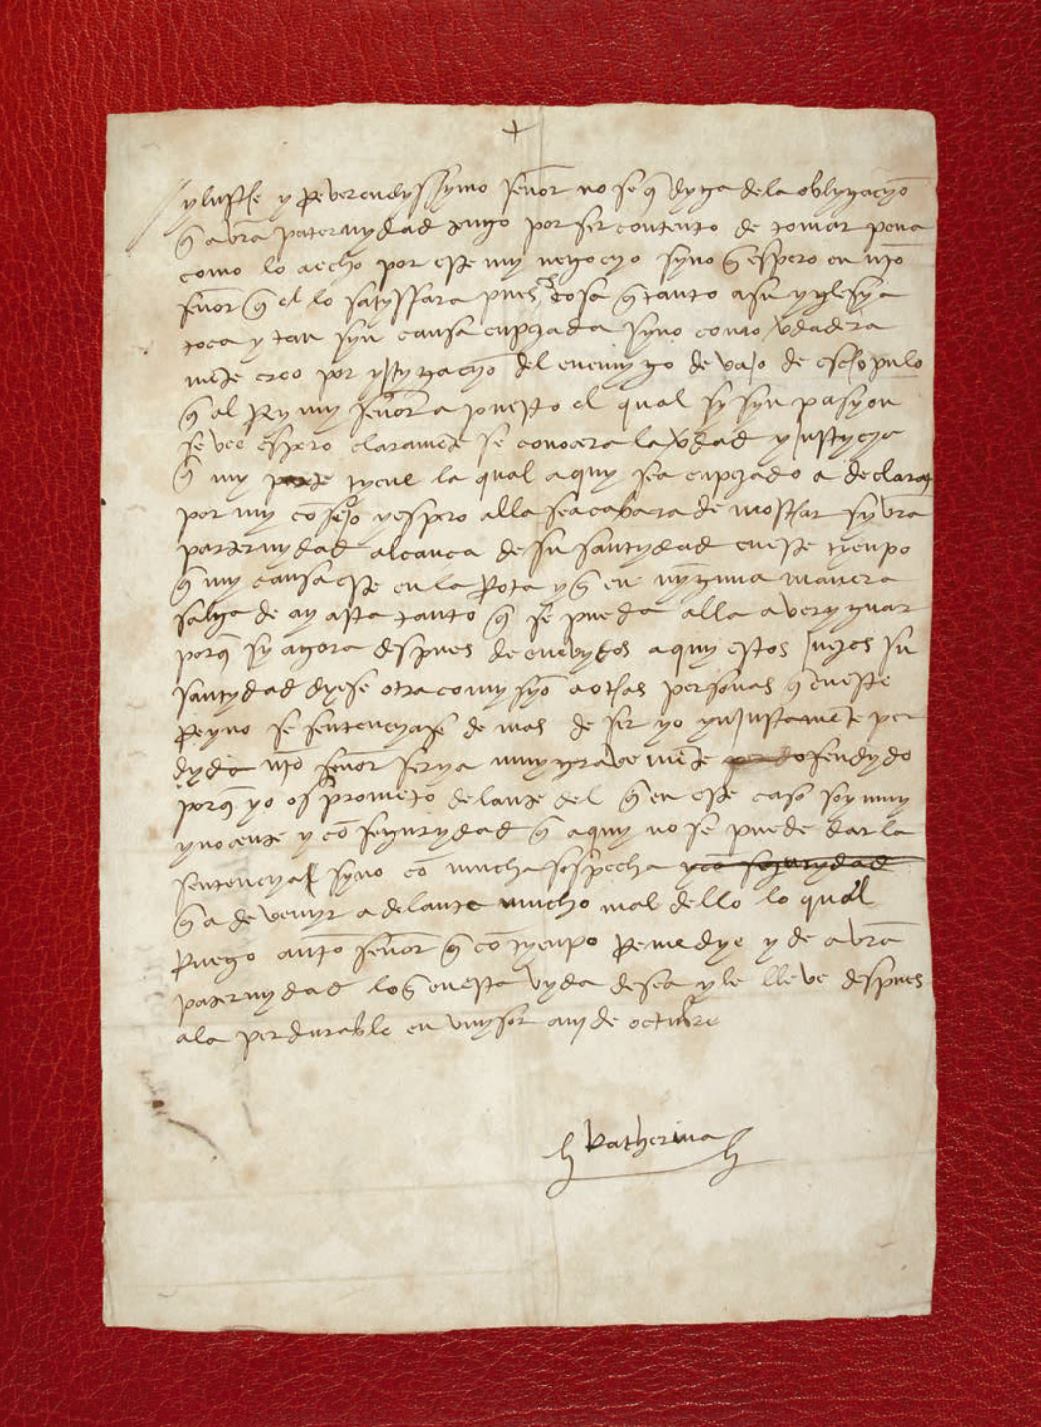 +
yllustre y Reverendyssymo señor no se q̃ dyga de la oblygacyõ
q̃ a vr̃a paternydad tengo por ser contento de tomar pena
como lo a echo por este my negocyo syno q̃ espero en nr̃o
señor q̃ el lo satysfara pues es cosa q̃ tanto a su yglesya
toca y tan syn causa enpezada syno como ṽdadera
mẽte creo por ynstygacyõ del enemygo de vajo de escropulo
q̃ al Rey my señor a puesto el qual sy syn pasyon
se vee espero claramẽte se conocera la ṽdad y justycya
q̃ my parte tyene la qual aquy se a enpezado a declarar
por my cõsejo y espero alla se acabara de mostrar sy vr̃a
paternydad alcança de su santydad en este tyenpo
q̃ my causa este en la Rota y q̃ en nynguna manera
salga de ay asta tanto q̃ se pueda alla averyguar
porq̃ sy agora despues de enevydos aquy estos juezes su
santydad dyese otra comysyõ a otras personas q̃ en este
Reyno se sentencyase de mas de ser yo ynjustamẽte per
dyda nr̃o señor serya muy gravemẽte ofendydo
porq̃ yo os prometo delante del q̃ en este caso soy muy
ynocente y cõ segurydad q̃ aquy no se puede dar la
sentencya syno cõ mucha sospecha y cõ segurydad
q̃ a de venyr adelante mucho mal dello lo qual
Ruego a nr̃o señor q̃ cõ tyenpo Remedye y de a vr̃a
paternydad lo q̃ en esta vyda desea y le lleve despues
a la perdurable en vnysor a iiij de octubre
Katherina